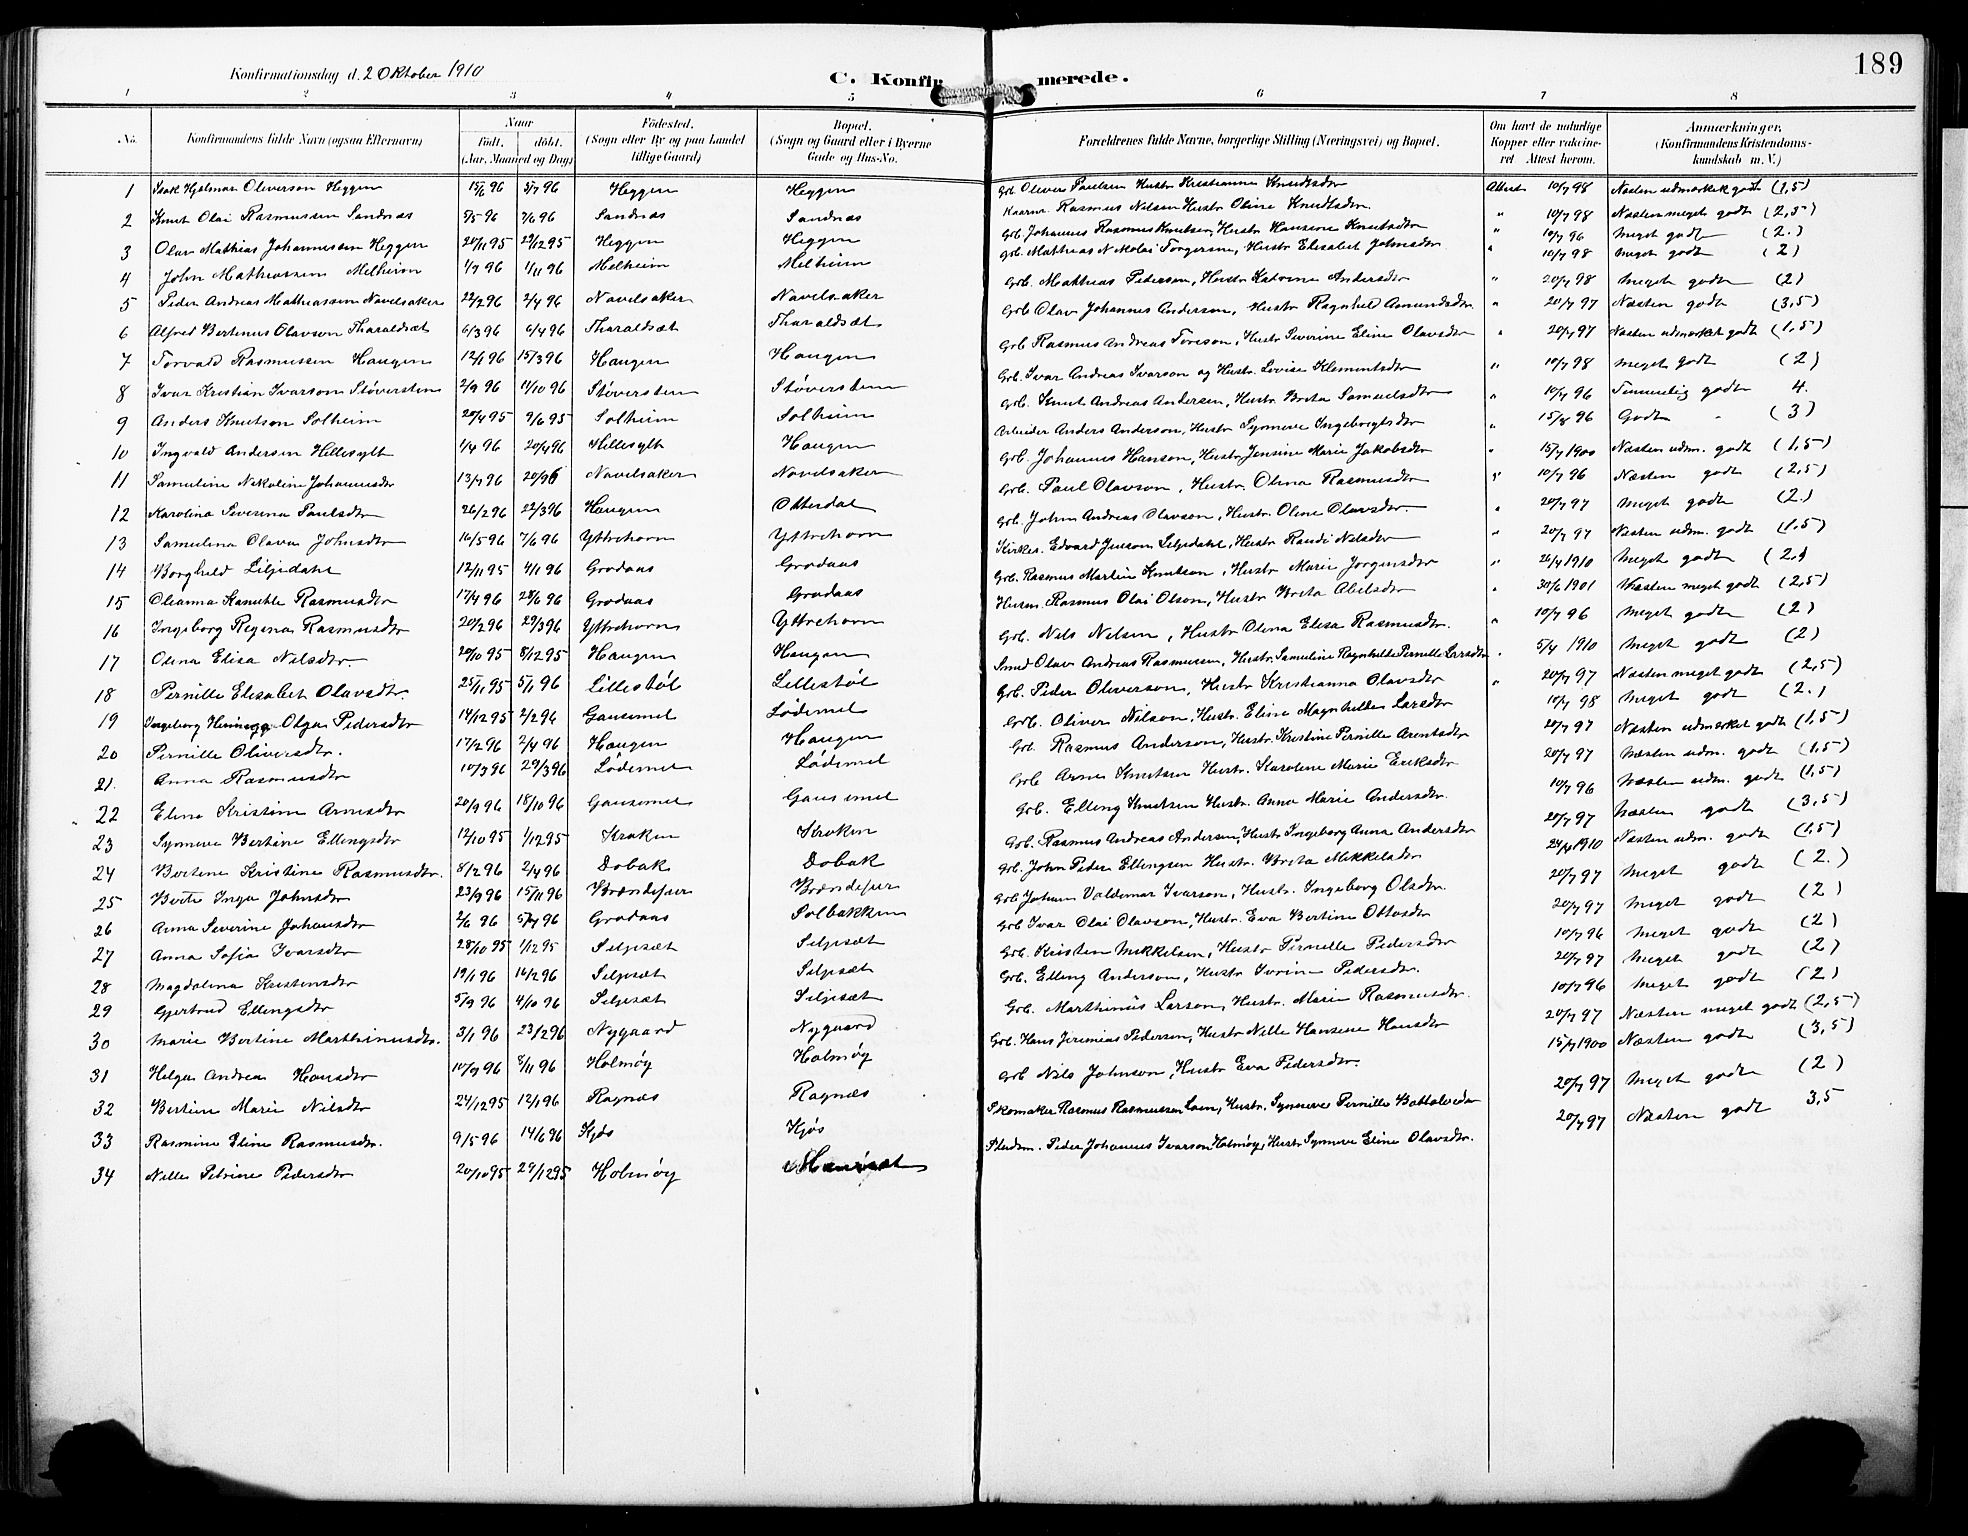 189
Konfirmationsdag d. 2 Oktober 1910
C. Konfirmerede.
1 2 3 4 5 6 7 8
No. Konfirmandens fulde Navn (ogsaa Efternavn) Naar födt, döbt. (Aar, Maaned og Dag) Födested. (Sogn eller By og paa Landet tillige Gaard) Bopæl. (Sogn og Gaard eller i Byerne Gade og Hus-No. Forældrenes fulde Navne, borgerlige Stilling (Næringsvei) og Bopæl. Om havt de naturlige Kopper eller vakcineret Attest herom. Anmærkninger. (Konfirmandens Kristendomskundskab m. V.)
1 Isak Hjalmar Oliverson Heggen 15/6 96 5/7 96 Heggen Heggen Grb. Oliver Paulsen Hustr. Kristianne Knudtsdtr Attest 10/7 98 Næsten udmærket godt (1,5)
2 Knut Olai Rasmussen Sandnæs 7/5 96 7/6 96 Sandnæs Sandnæs Rasmus Nilsen Hustr. Oline Knudtsdtr. " 10/7 98 Næsten meget godt (2,5)
3 Olav Mathias Johannessen Heggen 20/11 95 29/12 95 Heggen Heggen Grb. Johannes Rasmus Knutsen, Hustr. Hansine Knutsdtr " 10/7 96 Meget godt (2.)
4 John Mathiassen Melheim 1/7 96 1/11 96 Melheim Melheim Grb. Mathias Nikolai Torgersen, Hustr. Elisabet Johnsdtr " 10/7 98 Meget godt (2)
5 Peder Andreas Mathiassen Navelsaker 22/2 96 2/4 96 Navelsaker Navelsaker Grb. Matthias Pedersen, Hustr. Katrine Andersdtr " 20/7 98 Meget godt (2)
6 Alfred Bertinus Olavson Tharaldsæt 6/3 96 6/4 96 Tharaldsæt Tharaldsæt Grb. Olav Johannes Anderson, Hustr. Ragnhild Amundsdtr " 20/7 97 Næsten godt (3,5)
7 Torvald Rasmussen Haugen 12/1 96 15/3 96 Haugen Haugen Grb. Rasmus Andreas Toreson, Hustr. Severine Eline Olavsdtr " 20/7 97 Næsten udmærket godt (1,5)
8 Ivar Kristian Ivarson Støversten 2/9 96 11/10 96 Støversten Støversten Grb. Ivar Andreas Ivarson og Hustr. Lovise Klementsdtr " 10/7 98 Meget godt (2)
9 Anders Knutson Solheim 20/4 95 9/6 95 Solheim Solheim Grb. Knut Andreas Andersen, Hustr. Brita Samuelsdtr " 10/7 96 Temmelig godt 4.
10 Ingvald Andersen Hillesylt 1/4 96 20/4 96 Hillesylt Haugen Arbeider Anders Anderson, Hustr. Synneve Ingeborgtsdtr " 15/8 96 Godt (3)
11 Samuline Nikoline Johannesdtr 13/7 96 20/96 Navelsaker Navelsaker Grb. Johannes Hanson, Hustr. Jensine Marie Jakobsdtr " 15/7 1900 Næsten udm. godt (1,5)
12 Karolina Severina Paulsdtr 26/2 96 22/3 96 Haugen Otterdal Grb. Paul Olavson, Hustr. Olina Rasmusdtr " 10/7 96 Næsten godt (2,5)
13 Samulina Olava Johnsdtr 16/5 96 7/6 96 Yttrehorn Yttrehorn Grb. John Andreas Olavson, Hustr. Oline Olavsdtr. " 20/7 97 Meget godt (2.)
14 Borghild Liljedahl 12/11 95 4/1 96 Grodaas Grodaas Kirkes. Edvard Liljedahl, Hustr. Randi Nilsdtr " 20/7 97 Næsten udm. godt (1,5)
15 Olianna Kamille Rasmusdtr 17/4 96 28/6 96 Grodaas Grodaas Grb. Rasmus Martin Knutson, Hustr. Marie Jørgensdtr " 24/4 1910 Meget godt (2.)
16 Ingeborg Regina Rasmusdtr 20/2 96 29/3 96 Yttrehorn Yttrehorn Husm. Rasmus Olai Olson, Hustr. Brita Abelsdtr " 30/6 1901 Næsten meget godt (2,5)
17 Olina Elisa Nilsdtr 20/10 95 8/12 95 Haugen Haugen Grb. Nils Nilsen, Hustr Olina Elisa Rasmusdtr. " 10/7 96 Meget godt (2)
18 Pernille Elisabet Olavsdtr. 25/11 95 5/1 96 Lillestøl Lillestøl Smed Olav Andreas Rasmussen, Hustr. Samuline Ragnhilde Pernille Larsdtr " 5/4 1910 Meget godt (2)
19 Ingeborg Olga Pedersdtr 14/12 95 2/2 96 Gausemel Lødemel Grb. Peder Oliverson, Hustr Kristianna Olavsdtr " 20/7 97 Næsten meget godt (2,5)
20 Pernille Oliversdtr. 17/2 96 2/4 96 Haugen Haugen Grb. Oliver Nilson, Hustr. Eline Magnhilda Larsdtr 10/7 98 Meget godt (2.)
21. Anna Rasmusdtr 10/3 96 29/3 96 Lødemel Lødemel Grb. Rasmus Anderson, Hustr. Kristine Pernille Arentsdtr 20/7 97 Næsten udmærket godt (1,5)
22 Elina Kristine Arnesdtr 20/9 96 18/10 96 Gausemel Gausemel Grb. Arne Knutsen Hustr. Karoline Marie Eriksdtr 20/7 97 Næsten udm. godt (1,5)
23 Synneve Bertine Ellingsdtr 12/10 95 1/12 95 Kroken Kroken Grb. Elling Knutsen Hustr. Anna Marie Andersdtr. 10/7 96 Næsten udm. godt (1,5)
24 Bertine Kristine Rasmusdtr. 8/2 96 2/4 96 Dobak Dobak Grb. Rasmus Andreas Andersen, Hustr. Ingeborg Anna Andersdtr 20/7 97 Næsten godt (3,5)
25 Berte Inga Johnsdtr 23/9 96 15/11 96 Brændefur Brændefur Grb. John Peder Ellingsen Hustr. Brita Mikkelsdtr 24/4 1910 Næsten udm. godt (1,5)
26 Anna Severine Johansdtr 2/6 96 5/7 96 Grodaas Solbakken Grb. Johan Valdemar Ivarson, Hustr. Ingeborg Olsdtr. 20/7 97 Meget godt (2.)
27 Anna Sofia Ivarsdtr 28/10 95 1/12 95 Seljesæt Seljesæt Grb. Ivar Olai Olavson, Hustr. Eva Bertine Ottosdtr 20/7 97 Meget godt (2)
28 Magdalina Kristensdtr 19/1 96 16/2 96 Seljesæt Seljesæt Grb. Kristen Mikkelsen, Hustr Pernille Pedersdtr 10/7 96 Meget godt (2)
29 Gjertrud Ellingsdtr 5/9 96 4/10 96 Seljesæt Seljesæt Grb. Elling Anderson, Hustr Ivrine Pedersdtr. 20/7 97 Meget godt (2)
30 Marie Bertine Marthinusdtr. 3/1 96 23/2 96 Nygaard Nygaard Grb. Marthinus Larson, Hustr. Marie Rasmusdtr. 10/7 96 Meget godt (2)
31 Helga Andrea Hansdtr 10/9 96 8/11 96 Holmøy Holmøy Grb. Hans Jeremias Pedersen, Hustr Nille Hansine Hansdtr 20/7 97 Næsten meget godt (2,5)
32 Bertine Marie Nilsdtr 24/12 95 12/1 96 Ragnæs Ragnæs Grb Nils Johnson, Hustr Eva Pedersdtr. 15/7 1900 Næsten godt (3,5)
33 Rasmine Eline Rasmusdtr. 9/5 96 14/6 96 Kjøs Kjøs Skomaker Rasmus Rasmussen Loen, Hustr. Synneve Pernille 20/7 97 Meget godt (2)
34 Nille Petrine Pedersdtr 20/10 95 29/12 95 Holmøy Peder Johannes Ivarson Holmøy, Hustr Synneve Eline Olavsdtr. 20/7 97 Næsten godt 3,5